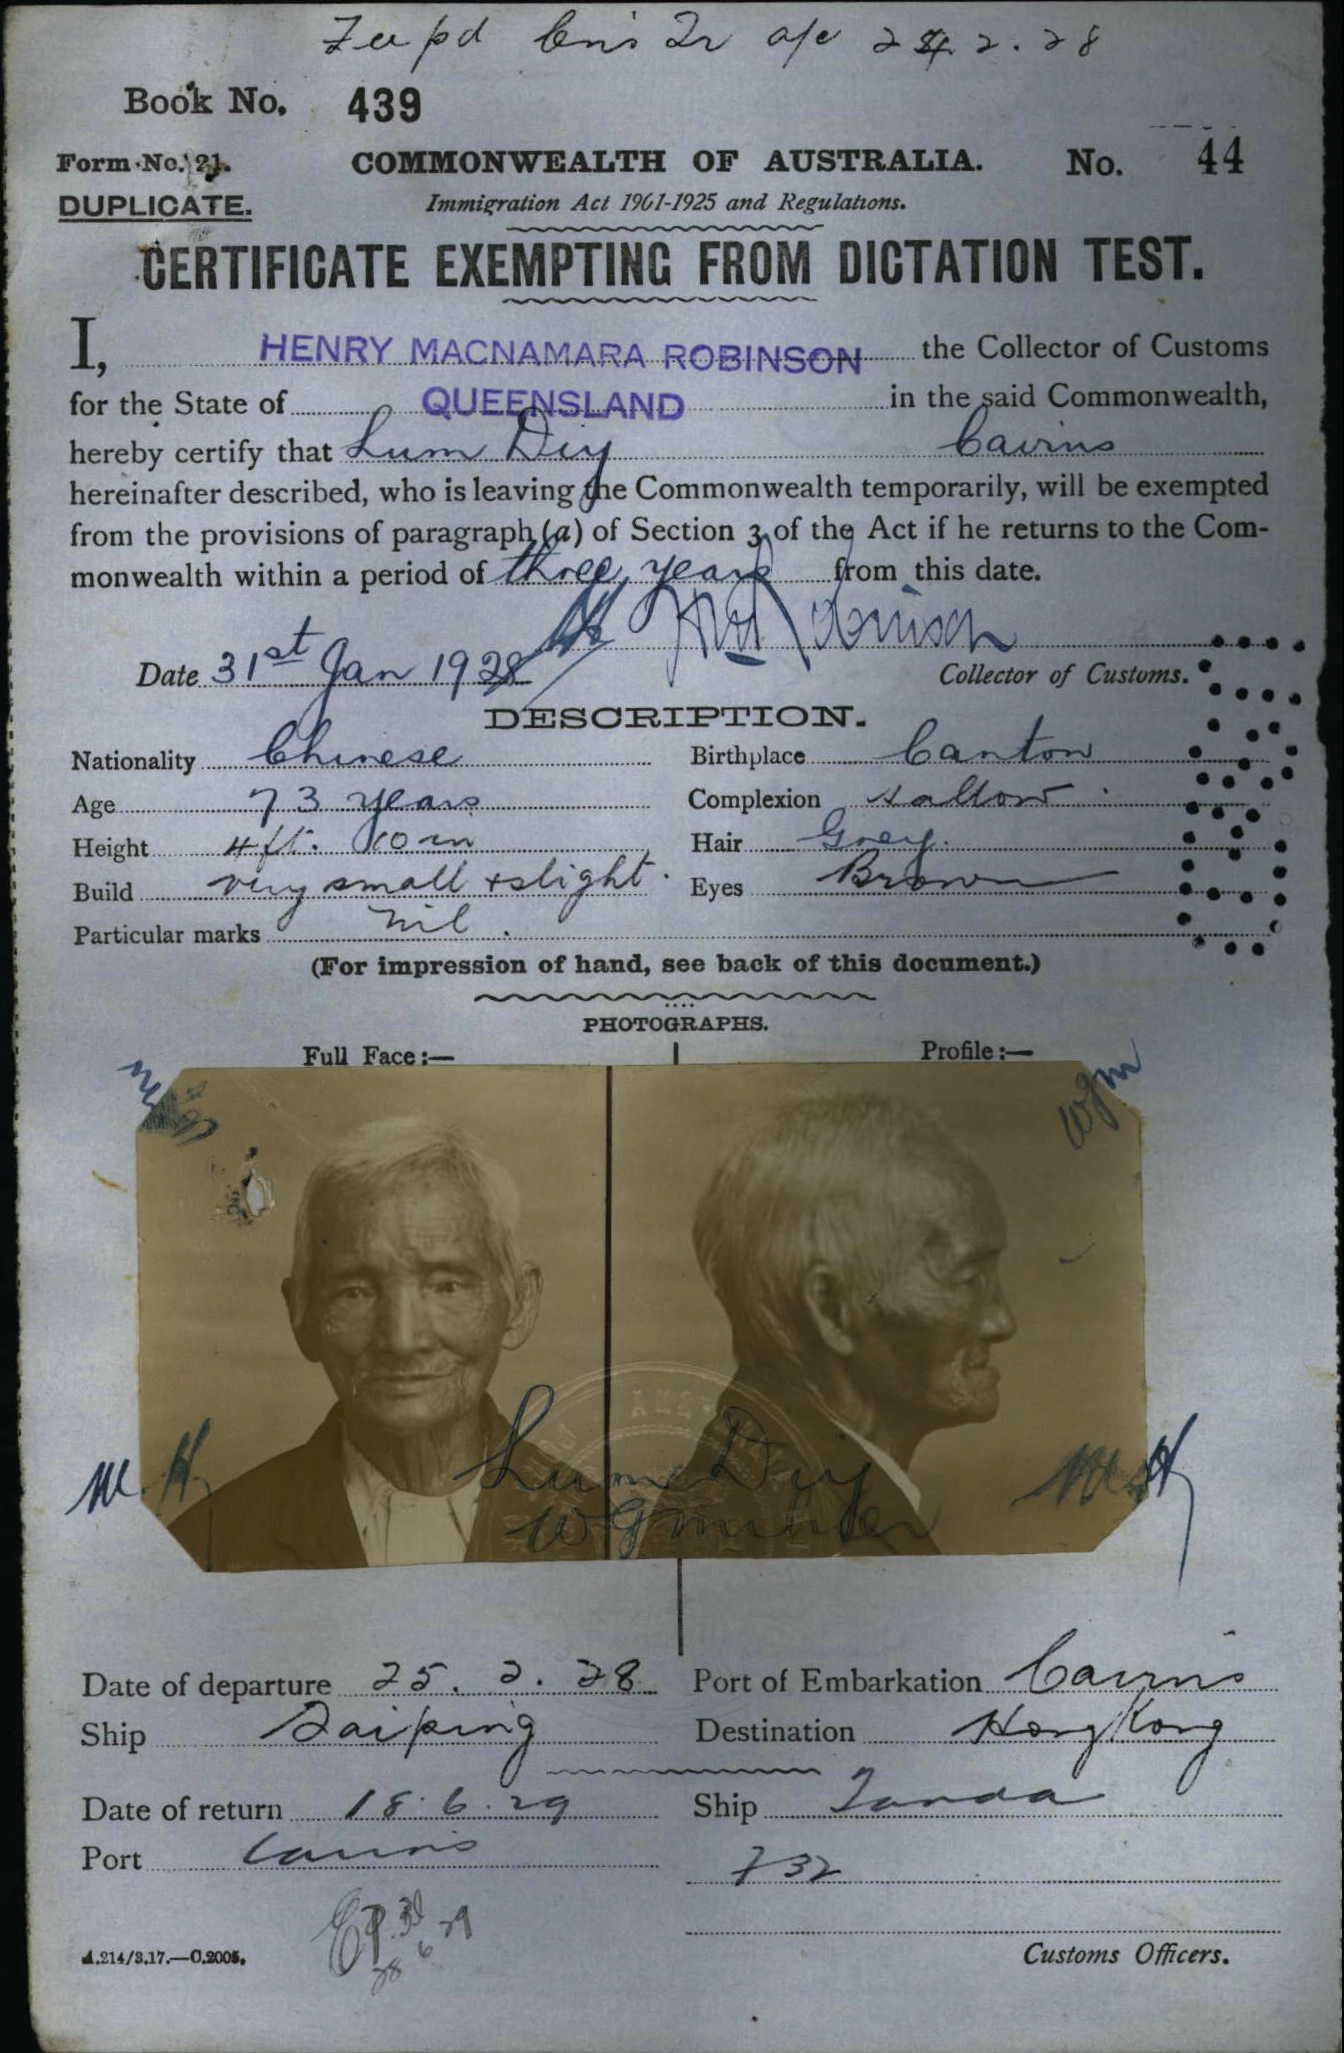 Book No. 439
Form No. 21. COMMONWEALTH OF AUSTRALIA. No. 44
DUPLICATE. Immigration Act 1901-1925 and Regulations.
CERTIFICATE EXEMPTING FROM DICTATION TEST.
I, HENRY MACNAMARA ROBINSON the Collector of Customs
for the State of QUEENSLAND in the said Commonwealth,
hereby certify that Lum Diy Cairns
hereinafter described, who is leaving the Commonwealth temporarily, will be exempted
from the provisions of paragraph (a) of Section 3 of the Act if he returns to the Com-
monwealth within a period of three years from this date.
Robinson
Date 31st Jan 1928 Collector of Customs.
DESCRIPTION.
Nationality Chinese Birthplace Canton
Age 73 years Complexion sallow
Height 4 ft. 10 in Hair Grey.
Build very small + slight. Eyes Brown
Particular marks nil.
(For impression of hand, see back of this document.)
PHOTOGRAPHS.
Full Face:— Profile:—
wgm
M. H.
Lum Diy
Date of departure 25. 2. 28 Port of Embarkation Cairns
Ship Taiping Destination Hong Kong
Date of return 18.6.29 Ship Tanda
Port Cairns 732
A.214/3.17.—C.2005. Customs Officers.